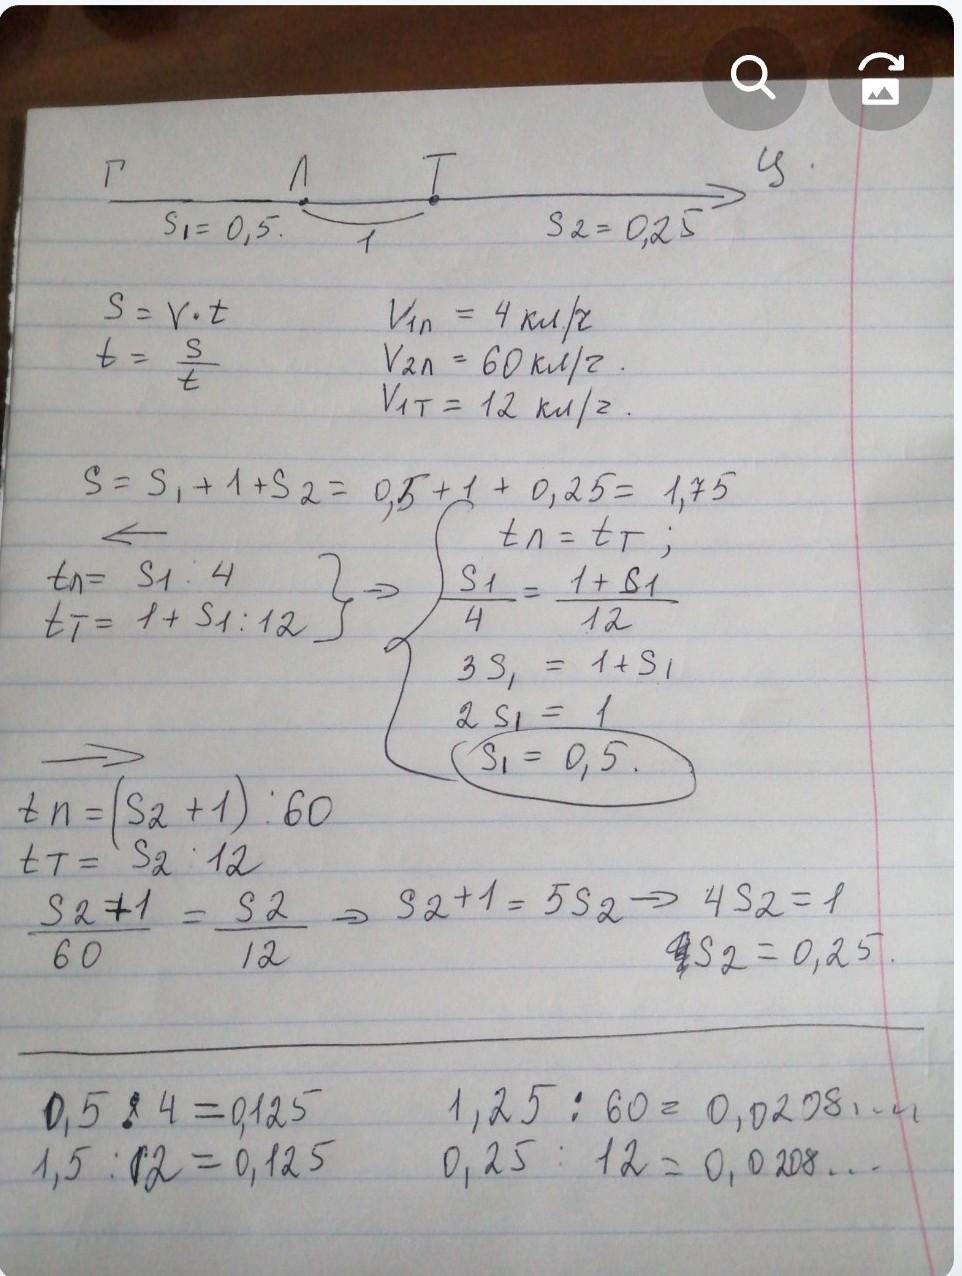 Г Л Т Ц.
S₁ = 0,5. 1 S2 = 0,25
S = V·t
t = S/t
V1л = 4 кл/ч
V2л = 60 кл/г.
V1T = 12 кл/г.
S = S₁ + 1 + S2 = 0,5 + 1 + 0,25 = 1,75
←
tл = S1 : 4
tT = 1 + S1 : 12 } ⇒
tл = tT ;
S1/4 = 1 + S1/12
3S₁ = 1 + S₁
2S₁ = 1
S₁ = 0,5.
→
tл = (S2 + 1) : 60
tT = S2 : 12
S2+1/60 = S2/12 ⇒ S2 + 1 = 5S2 → 4S2 = 1
S2 = 0,25.
0,5 : 4 = 0,125
1,5 : 12 = 0,125
1,25 : 60 = 0,0208....
0,25 : 12 = 0,0208...